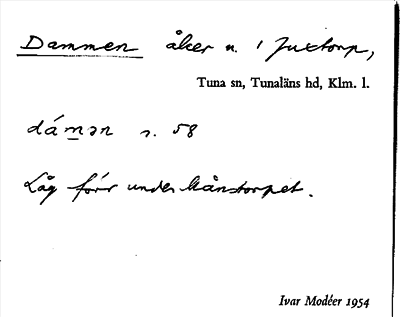 Dammen åker u. i Juxtorp,
Tuna sn, Tunaläns hd, Klm. l.
dám̲ən s. 58
Låg förr under Månstorpet.
Ivar Modéer 1954